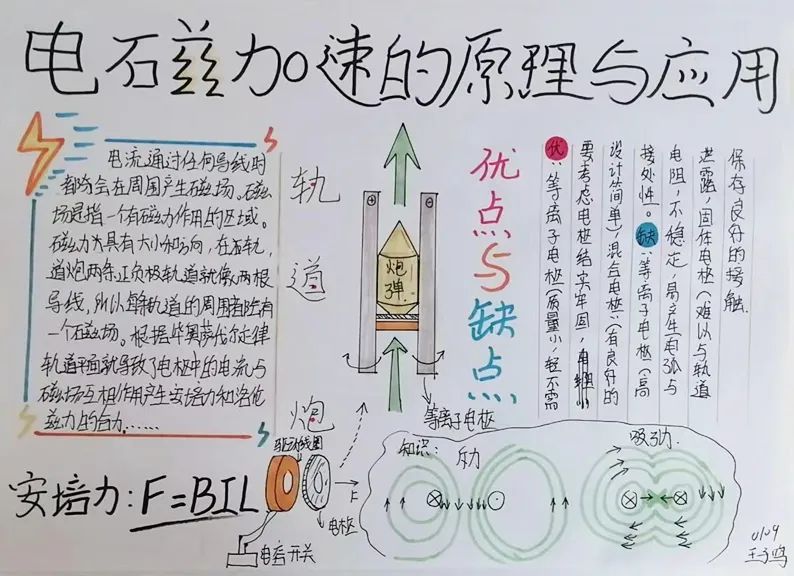 电磁力加速的原理与应用
电流通过任何导线时
都将会在周围产生磁场。磁
场是指一个有磁力作用的区域。
磁力为具有大小和方向,在
道炮两条正负极轨道就像两根
导线,所以每轨道的周围都会有
一个磁场。根据毕奥萨伐尔定律
轨道平面就导致了电极中的电流与
磁场互相作用产生安培力和洛伦
兹力的合力......
安培力:F=BIL
轨
道
炮
炮
弹
等离子电枢
优点与缺点
优:等离子电枢(质量小,轻不需
要考虑电枢结实牢固,
设计简单),混合电枢:(有良好的
接处性。缺:等离子电枢(高
电阻,不稳定,易产生电弧与
泄露,固体电枢(难以与轨道
保存良好的接触.
驱动线圈
F
电枢
电容开关
知识:
斥力
吸引力.
0109
王子鸣